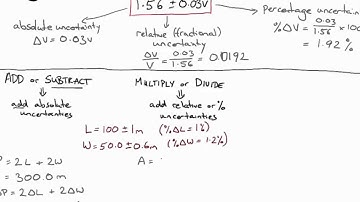 1.56 ± 0.03V
absolute uncertainty
ΔV = 0.03V
relative (fractional) uncertainty
ΔV/V = 0.03/1.56 = 0.0192
Percentage uncertain
%ΔV = 0.03/1.56 × 100
= 1.92 %
ADD or SUBTRACT
add absolute uncertainties
MULTIPLY or DIVIDE
add relative or % uncertainties
L = 100 ± 1m (%ΔL = 1%)
W = 50.0 ± 0.6m (%ΔW = 1.2%)
P = 2L + 2W
= 300.0 m
ΔP = 2ΔL + 2ΔW
A =